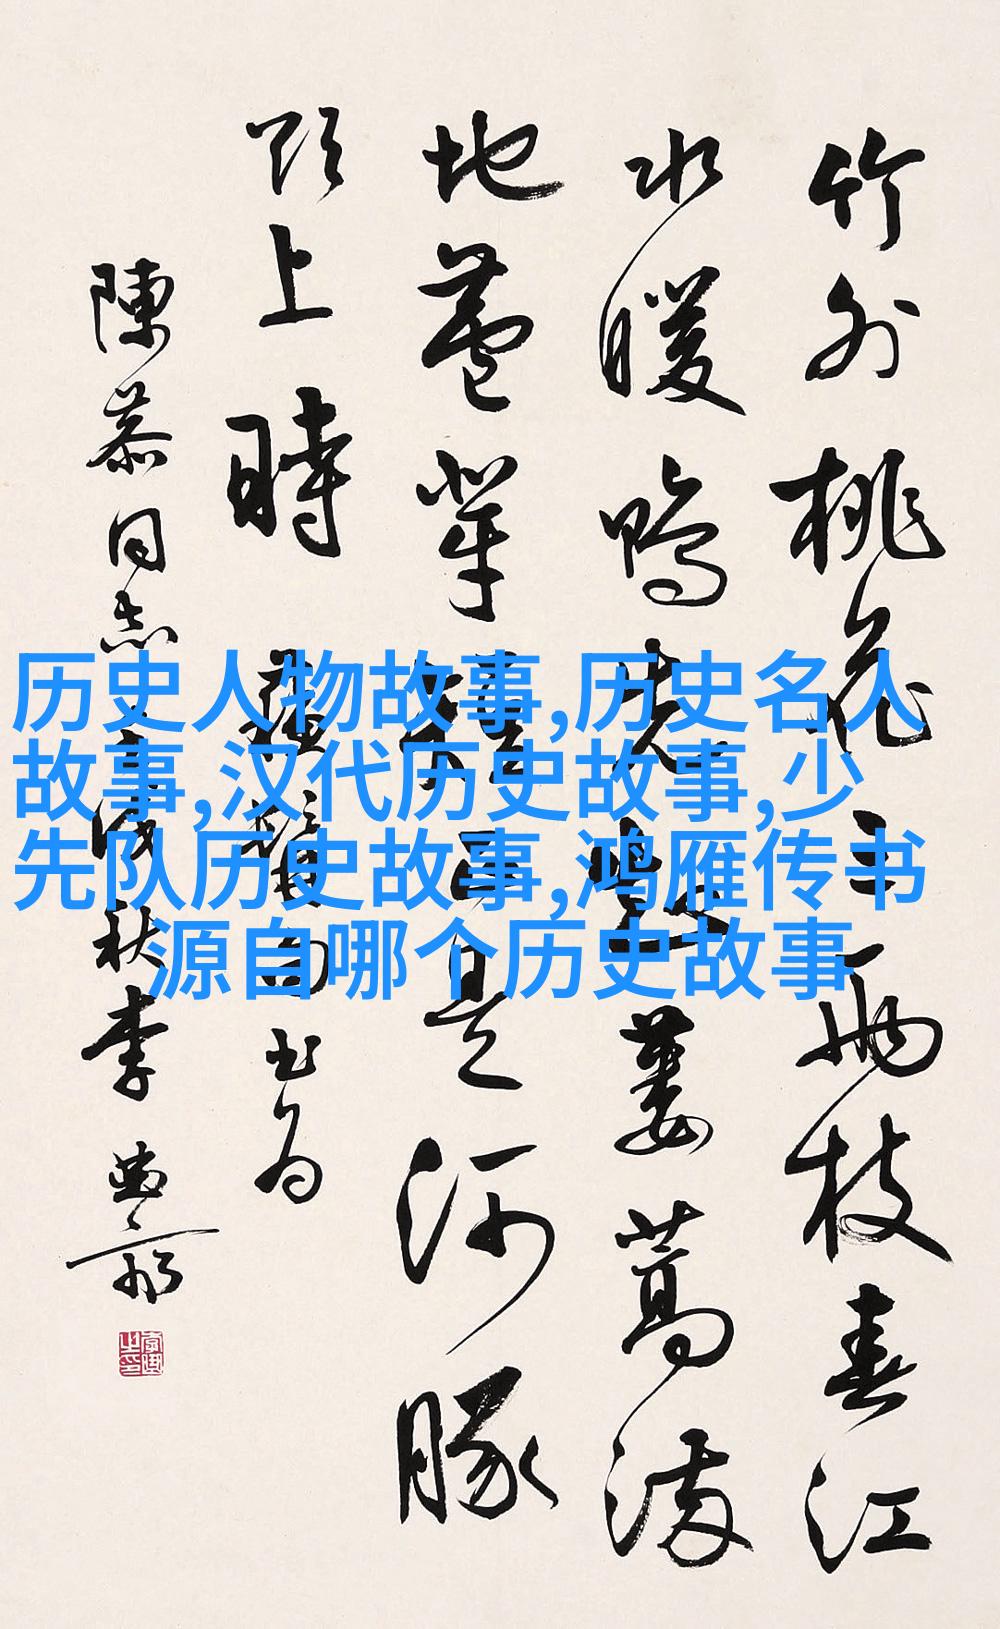 竹外桃花三兩枝春江
水暖鴨先知蔞蒿滿
地蘆芽短正是河豚
欲上時 蘇髯句书为
陳慕同志秋李曲齋
历史人物故事,历史名人
故事,汉代历史故事,少
先队历史故事,鸿雁传书
源自哪个历史故事